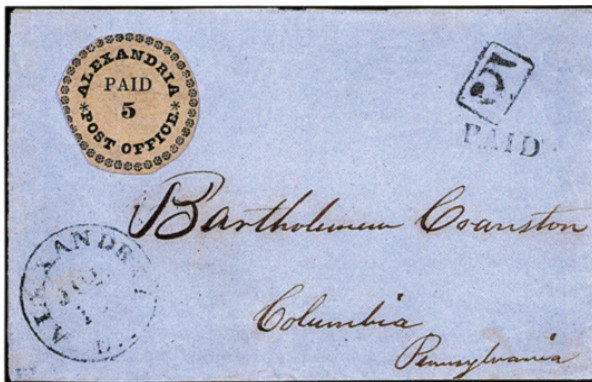 ALEXANDRIA
PAID
5
* POST OFFICE *
5
PAID
Bartholemew Cranston
Columbia
Pennsylvania